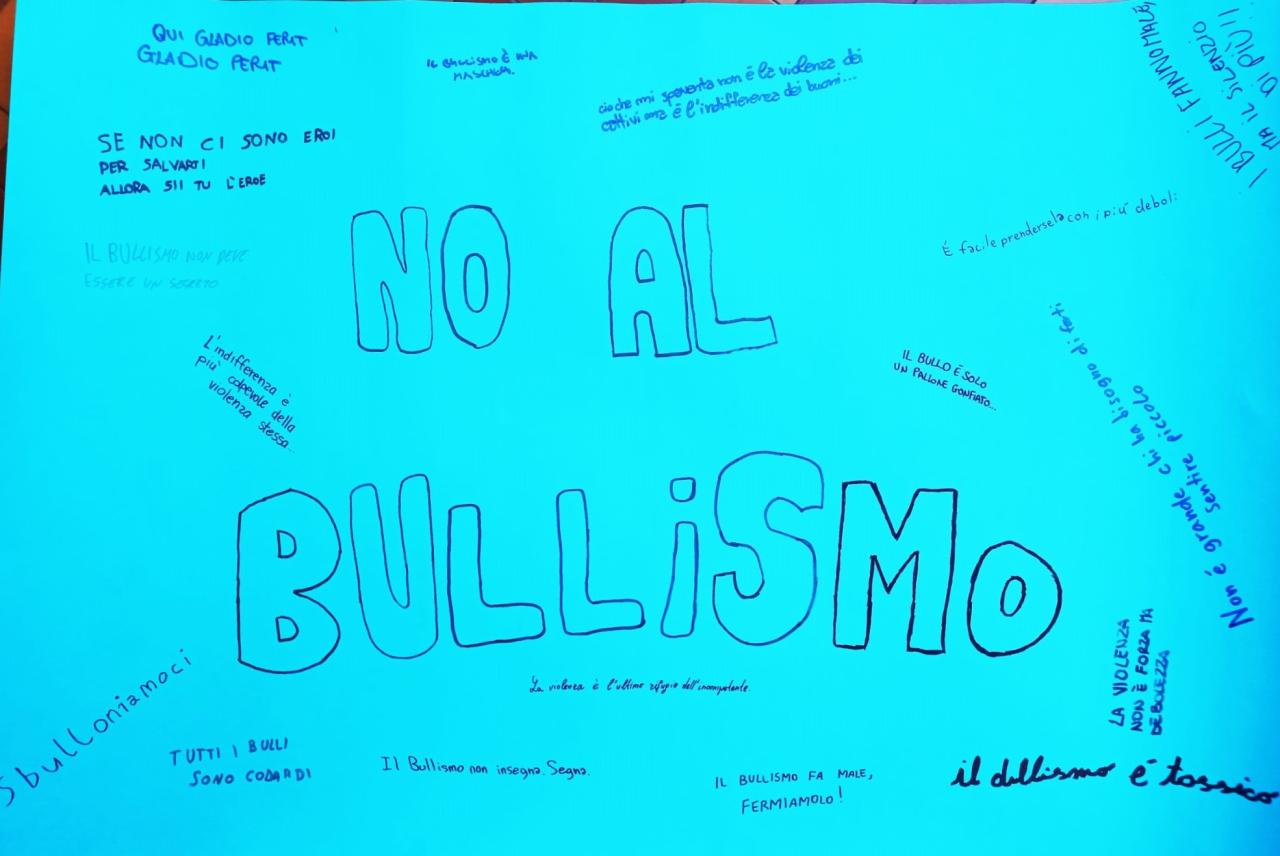 QUI GLADIO FERIT
GLADIO PERIT
IL BULLISMO È UNA
MASCHERA.
ciò che mi spaventa non è la violenza dei
cattivi ma è l'indifferenza dei buoni...
I BULLI FANNO MALE,
MA IL SILENZIO
DI PIÙ!!
SE NON CI SONO EROI
PER SALVARTI
ALLORA SII TU L'EROE
È facile prendersela con i più deboli
IL BULLISMO NON DEVE
ESSERE UN SEGRETO
NO AL
L'indifferenza è
più colpevole della
violenza stessa...
IL BULLO È SOLO
UN PALLONE GONFIATO...
Non é grande chi ha bisogno di farti
sentire piccolo
BULLiSMO
LA VIOLENZA
NON È FORZA MA
DEBOLEZZA
La violenza è l'ultimo rifugio dell'incompetente.
Sbulloniamoci
TUTTI I BULLI
SONO CODARDI
Il Bullismo non insegna. Segna.
IL BULLISMO FA MALE,
FERMIAMOLO!
il dullismo é tossico